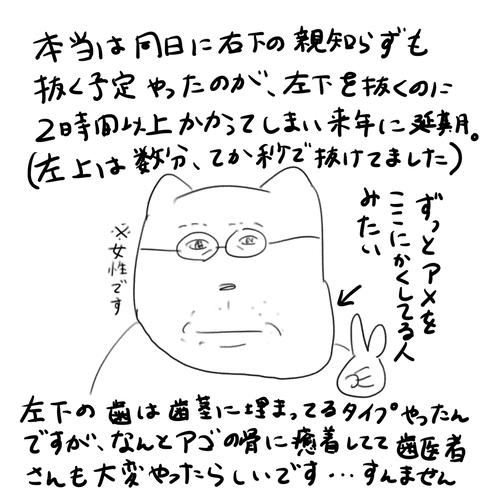 本当は同日に右下の親知らずも
抜く予定やったのが、左下を抜くのに
2時間以上かかってしまい来年に延期。
(左上は数分、てか秒で抜けてました)
ずっとアメを
ここにかくしてる人
みたい
※女性です
左下の歯は歯茎に埋まってるタイプやったん
ですが、なんとアゴの骨に癒着してて歯医者
さんも大変やったらしいです…すんません